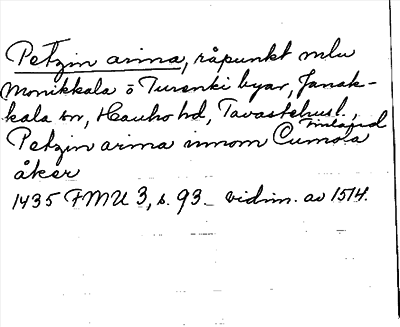 Petzin arina, råpunkt mlu
Monikkala o Turenki byar, Janak-
kala sn, Hauho hd, Tavastehusl.,
Finland
Petzin arina innom Cumola
åker
1435 FMU 3, s. 93. vidim. av 1514.